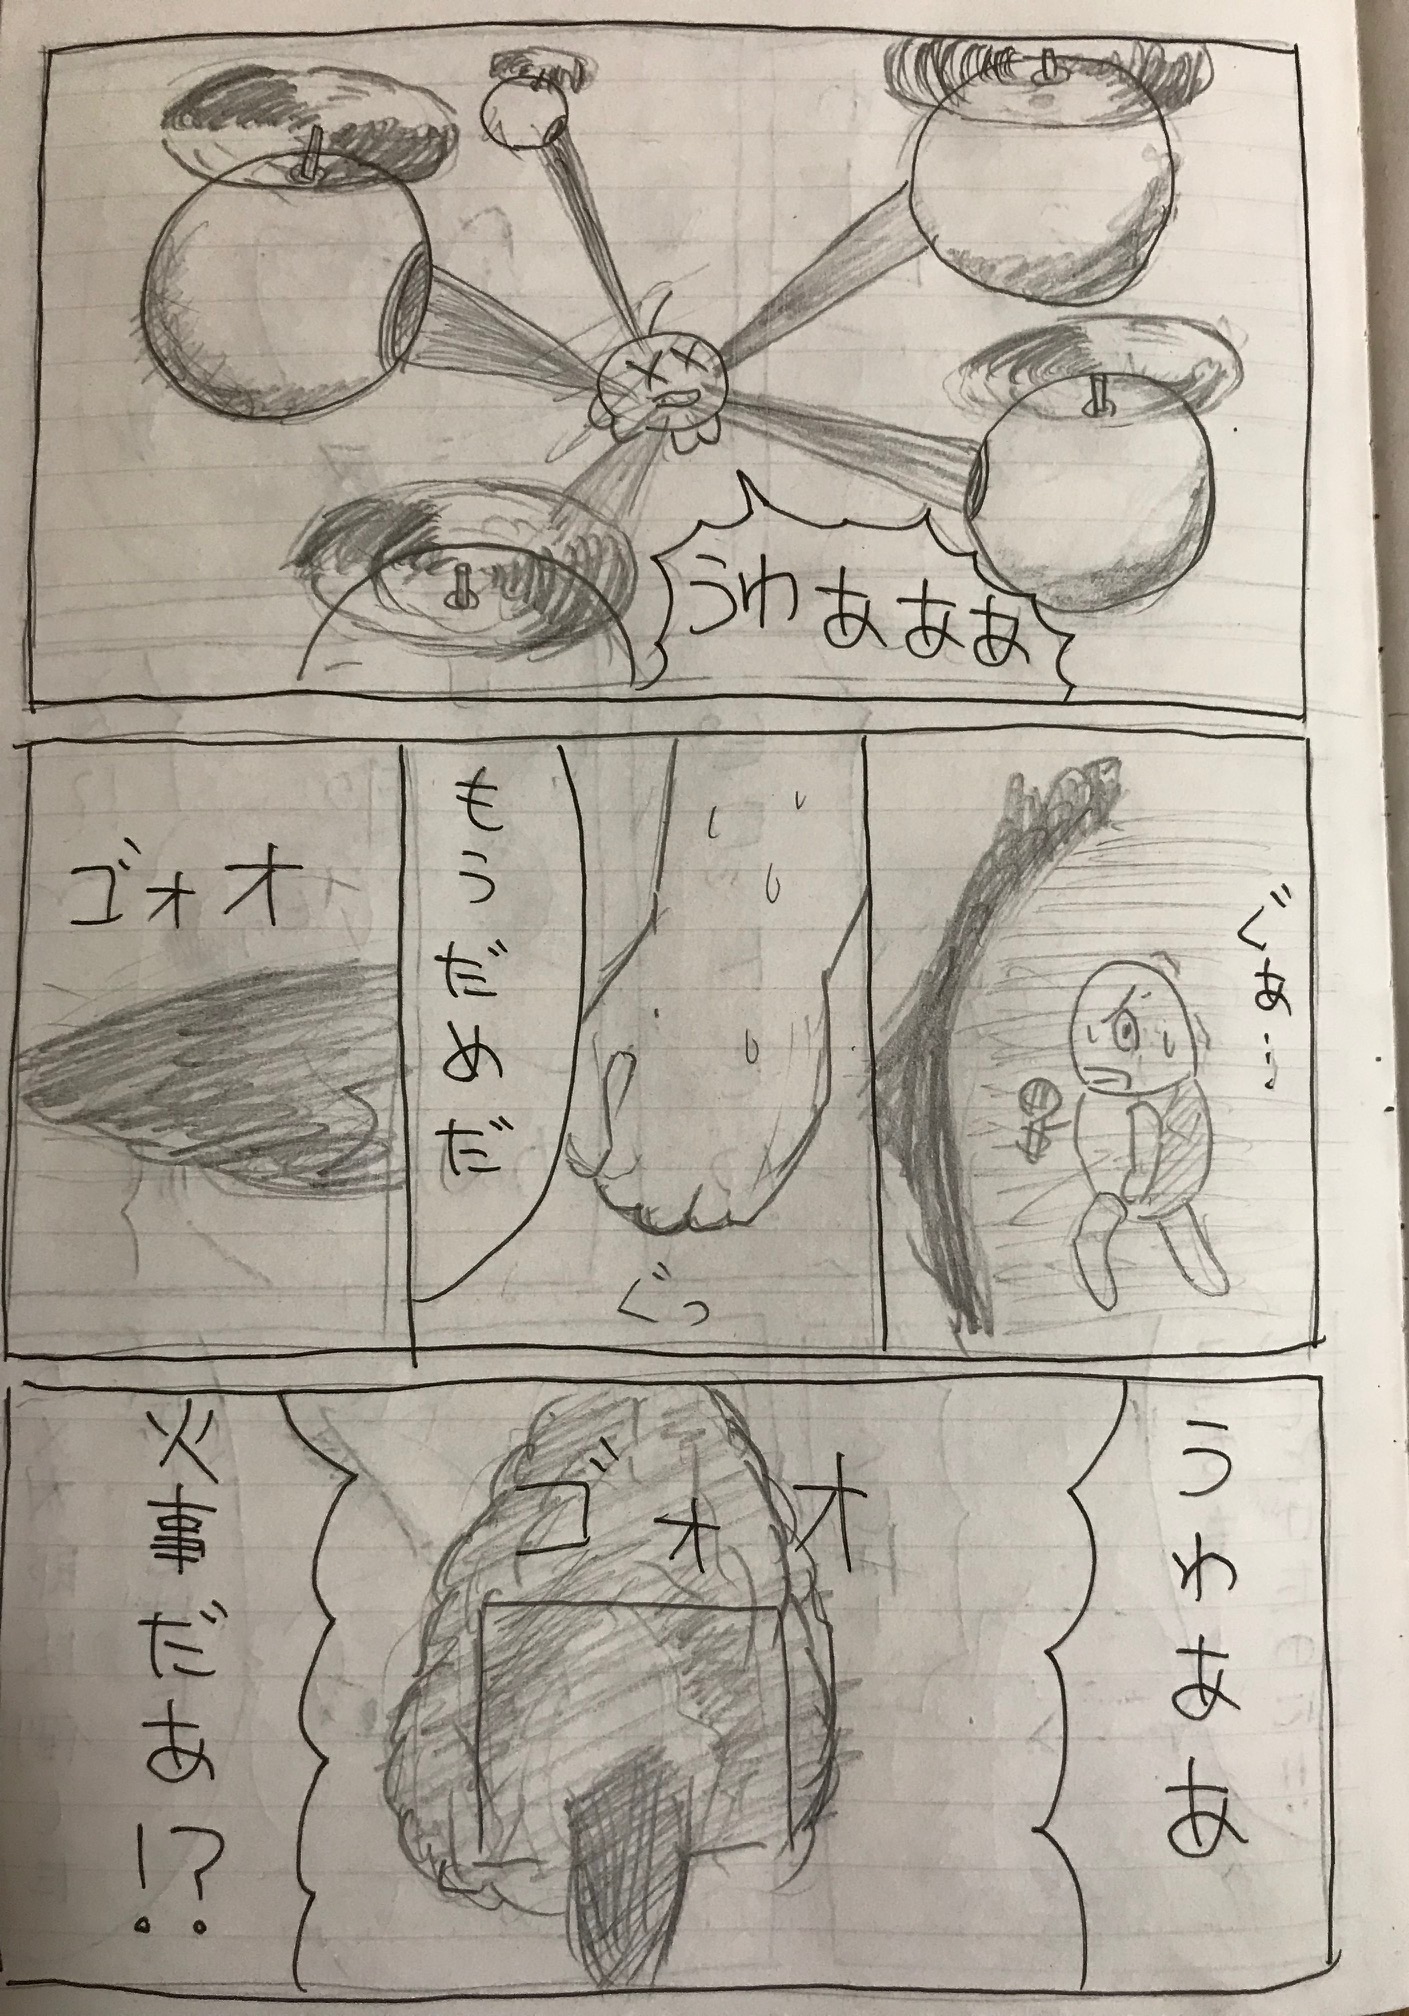 うわぁぁぁ
ぐぁ…
ぐっ
もうだめだ
ゴォオ
うわぁあ
ゴォオ
火事だあ!?